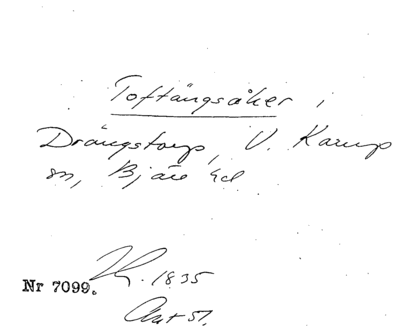 Toftängsåker,
Drängstorp, V. Karup
sn, Bjäre hd
Nr 7099. 1835
Avt 51.